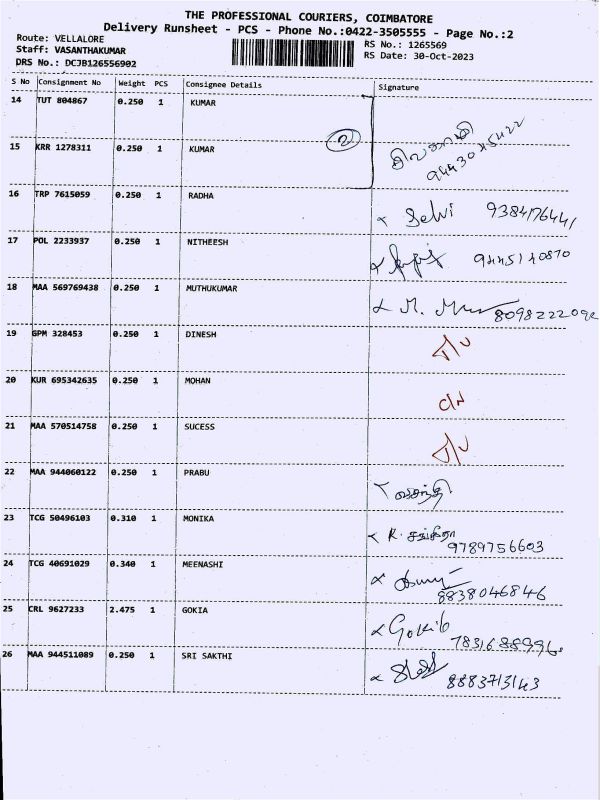 THE PROFESSIONAL COURIERS, COIMBATORE
Delivery Runsheet - PCS - Phone No.:0422-3505555 - Page No.:2
Route: VELLALORE
Staff: VASANTHAKUMAR
DRS No.: DCJB126556902
RS No.: 1265569
RS Date: 30-Oct-2023
S No Consignment No Weight PCS Consignee Details Signature
14 TUT 804867 0.250 1 KUMAR
2
15 KRR 1278311 0.250 1 KUMAR
சிவகாமி
9443045422
16 TRP 7615059 0.250 1 RADHA
Selvi 9384176441
17 POL 2233937 0.250 1 NITHEESH
9445140870
18 MAA 569769438 0.250 1 MUTHUKUMAR
M. 8098222092
19 GPM 328453 0.250 1 DINESH
20 KUR 695342635 0.250 1 MOHAN
21 MAA 570514758 0.250 1 SUCESS
22 MAA 944060122 0.250 1 PRABU
வசந்தி
23 TCG 50496103 0.310 1 MONIKA
R. சங்கீதா
9789756603
24 TCG 40691029 0.340 1 MEENASHI
8838046846
25 CRL 9627233 2.475 1 GOKIA
Gokib
7831688996
26 MAA 944511089 0.250 1 SRI SAKTHI
8883713143